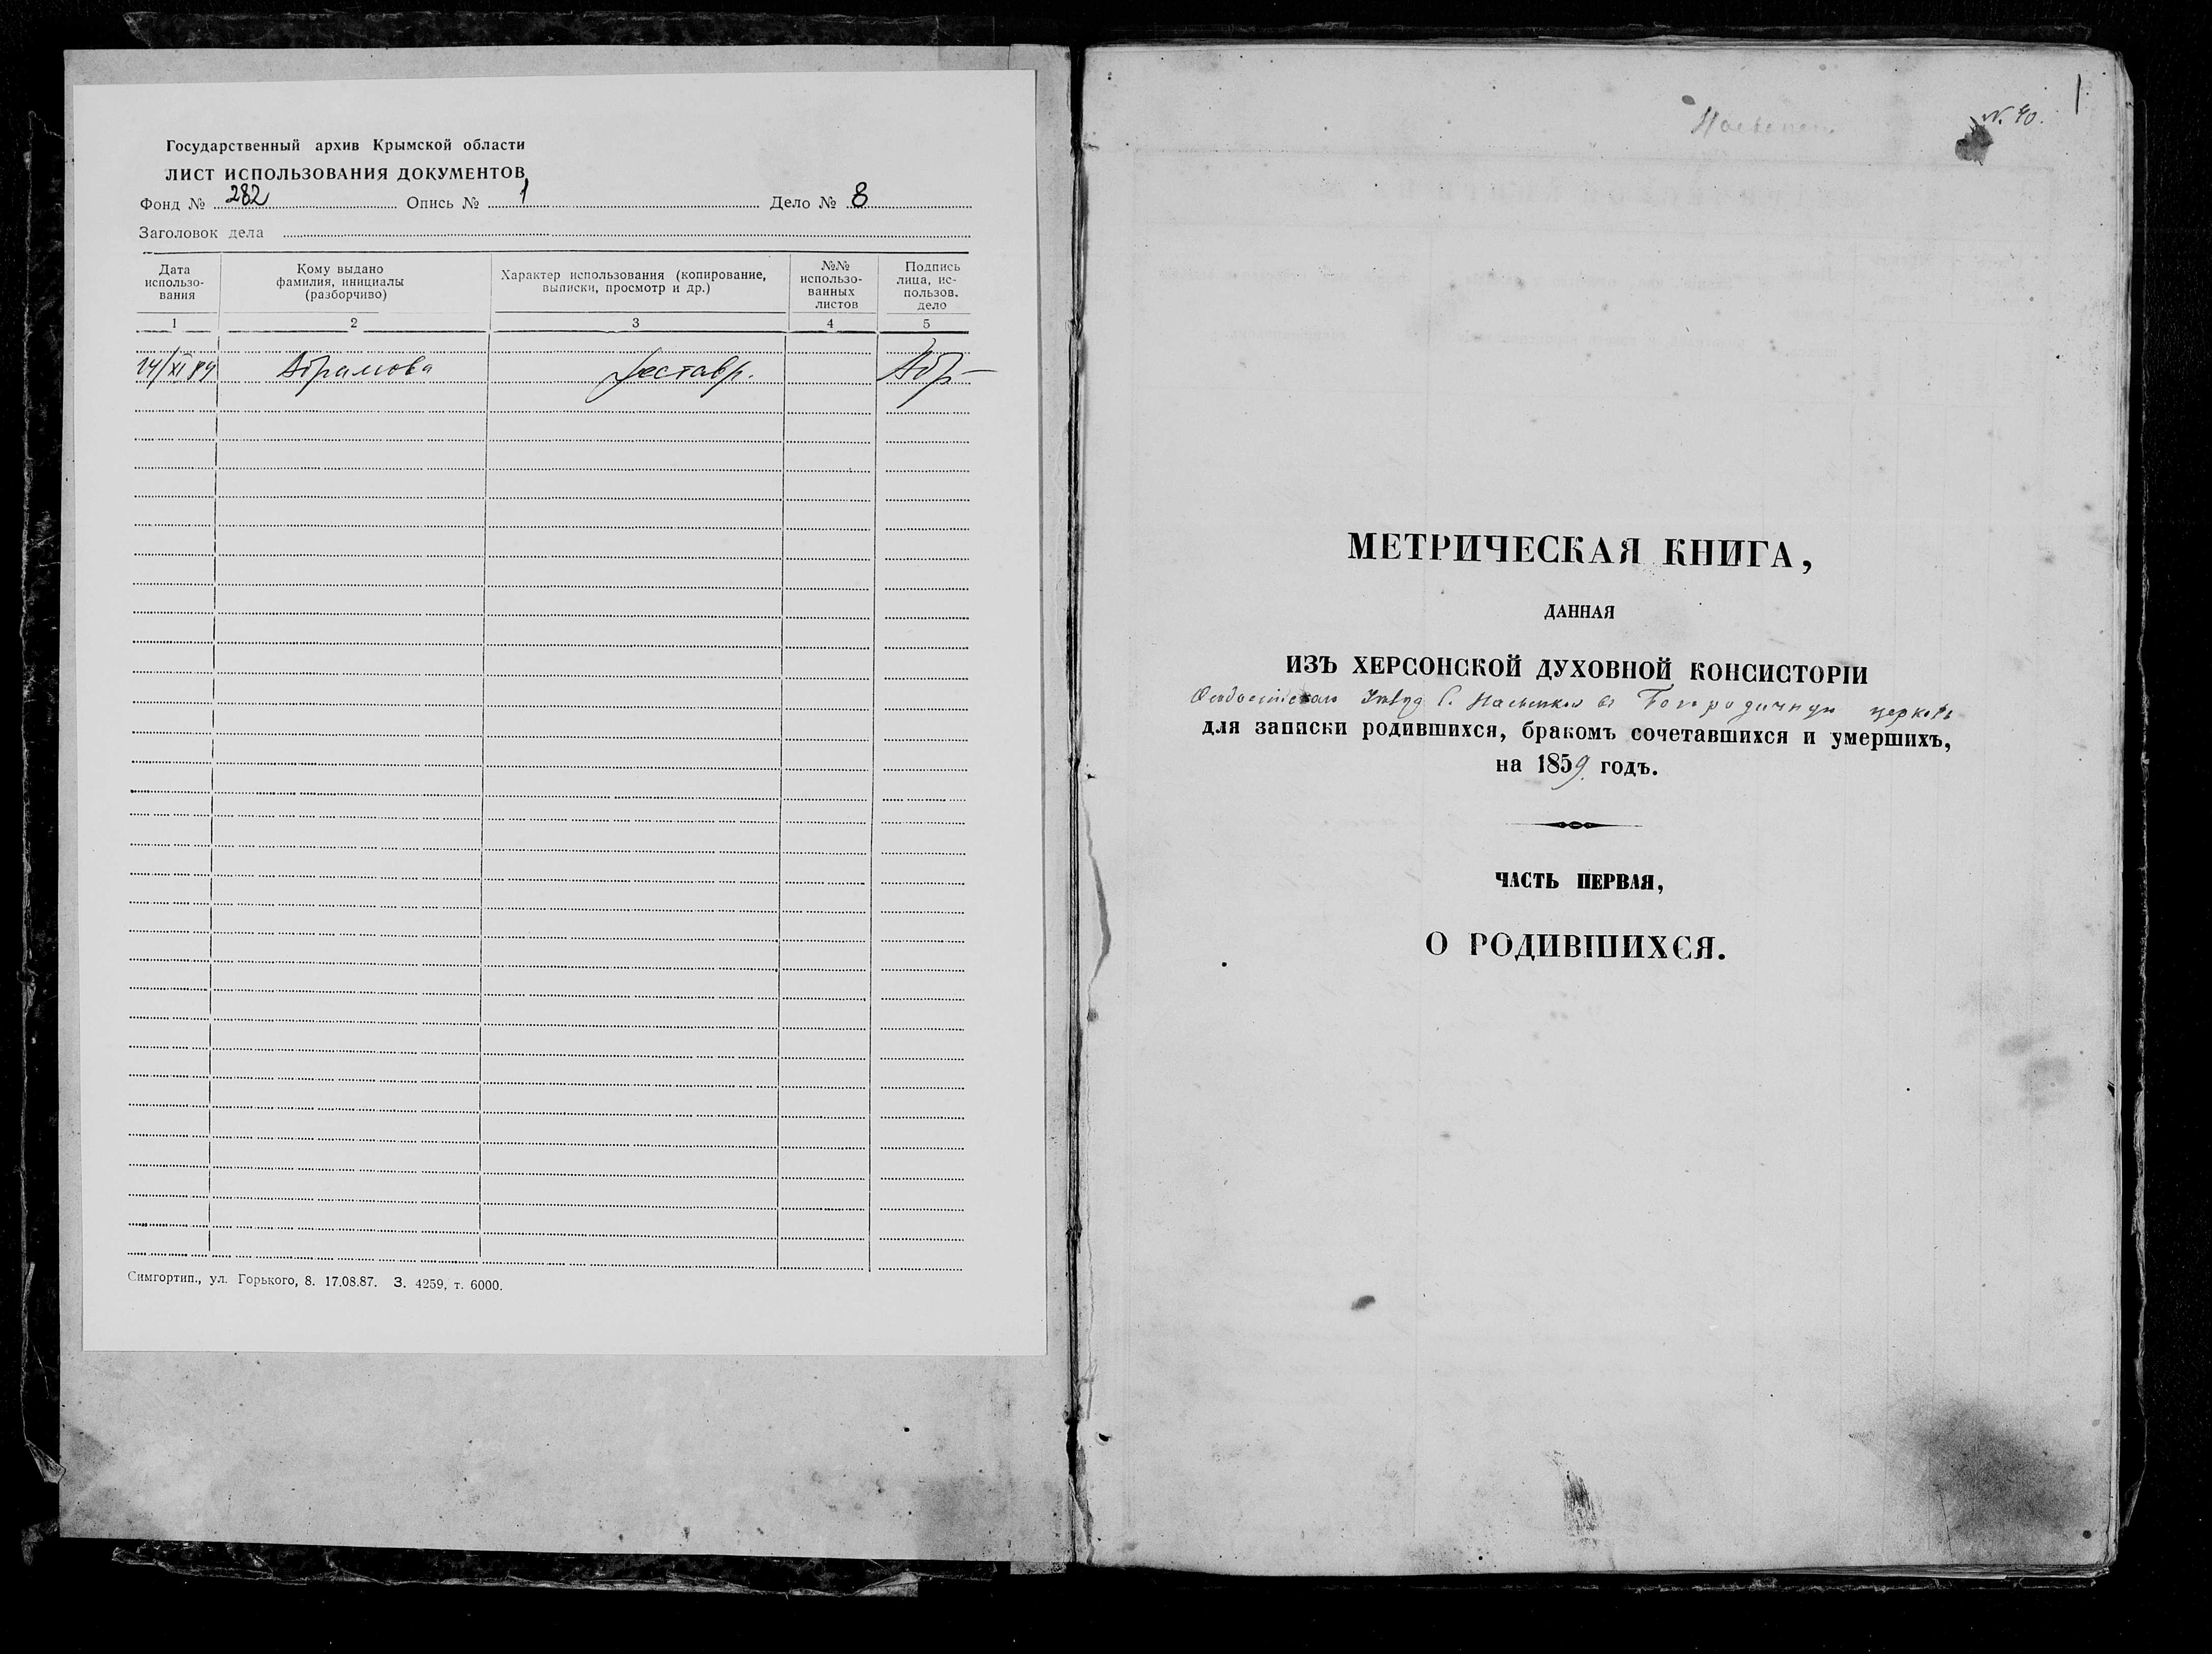 Государственный архив Крымской области
ЛИСТ ИСПОЛЬЗОВАНИЯ ДОКУМЕНТОВ
Фонд № 282 Опись № 1 Дело № 8
Заголовок дела
Дата использо-вания
Кому выдано фамилия, инициалы (разборчиво)
Характер использования (копирование, выписки, просмотр и др.)
№№ использо-ванных листов
Подпись лица, ис-пользов. дело
1 2 3 4 5
14/XI 89 Абрамова реставр. Абр
Симгортип., ул. Горького, 8. 17.08.87. З. 4259, т. 6000.
N. 40. 1
МЕТРИЧЕСКАЯ КНИГА,
ДАННАЯ
ИЗЪ ХЕРСОНСКОЙ ДУХОВНОЙ КОНСИСТОРІИ
С. въ Богородичную церковь
для записки родившихся, бракомъ сочетавшихся и умершихъ,
на 1859 годъ.
ЧАСТЬ ПЕРВАЯ,
О РОДИВШИХСЯ.